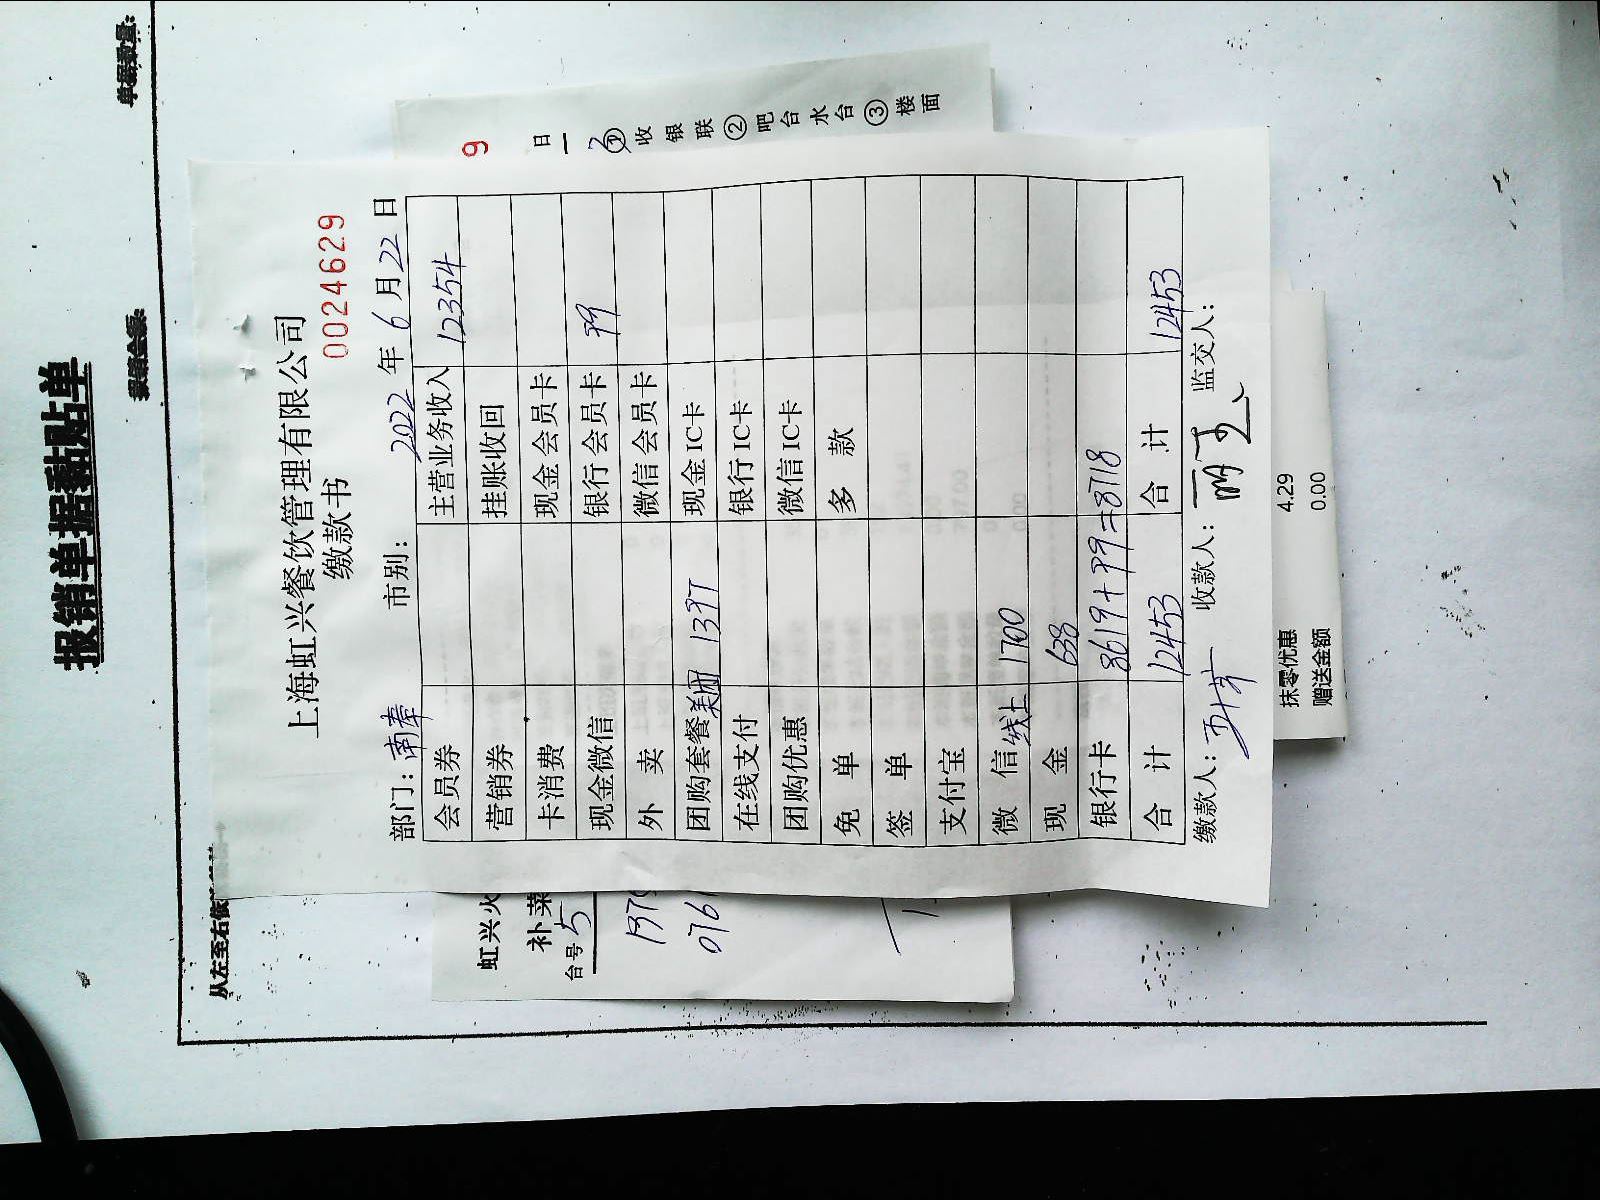 报销单据黏贴单
报销金额: 单据数量:
上海虹兴餐饮管理有限公司
缴款书 0024629
部门：南奉 市别： 2022 年 6 月 22 日
会员券 主营业务收入 12354
营销券 挂账收回
卡消费 现金会员卡
现金微信 银行会员卡 99
外 卖 微信会员卡
团购套餐 美团 1397 现金IC卡
在线支付 银行IC卡
团购优惠 微信IC卡
免 单 多 款
签 单
支付宝
微 信 线上 1700
现 金 638
银行卡 8619+99=8718
合 计 12453 合 计 12453
缴款人： 收款人： 监交人：
虹兴火
补菜
台号 5
9
日
①收银联②吧台水台③楼面
抹零优惠 4.29
赠送金额 0.00